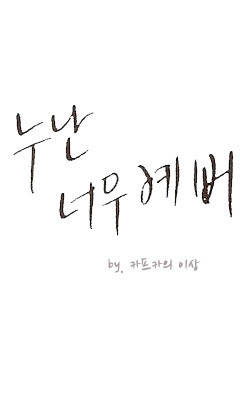 누난
너무 예뻐
by. 카프카의 이상